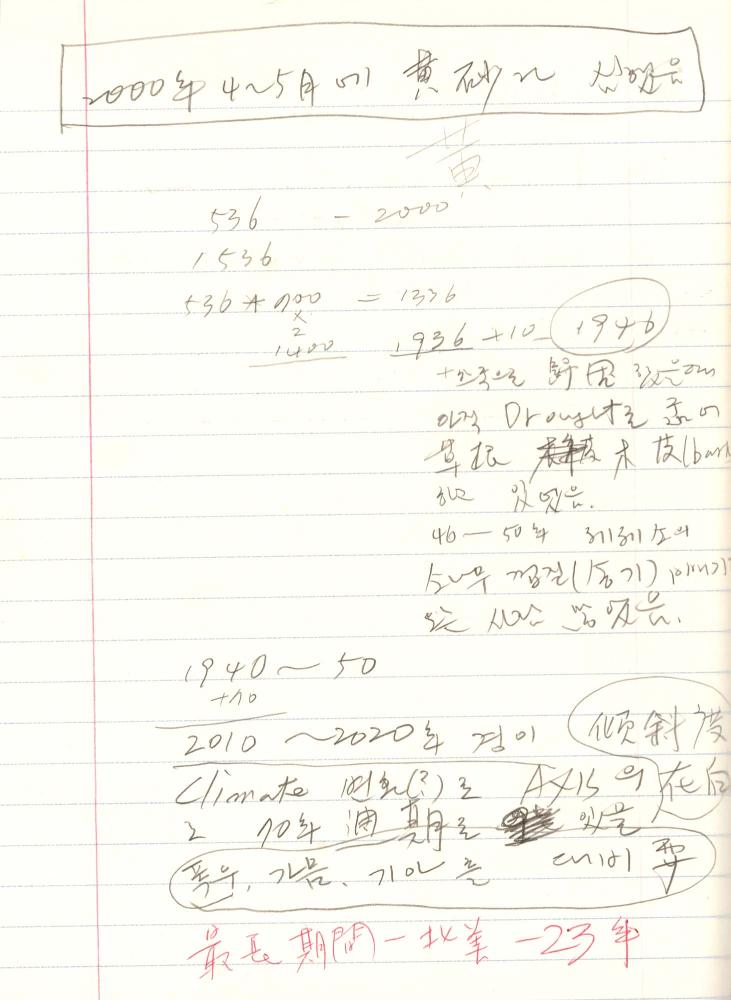 2000年 4~5月에 黃砂가 심했음
黃
536 - 2000
1536
536 + 700 = 1336
×
2
1400 1936 +10 1946
韓国 왔을때
아직 Drought로
草根 木 皮(bark
하고 있었음.
46-50年
소나무 껍질(송기)
있었음.
1940 ~ 50
+70
2010 ~2020年 경이 傾斜度
Climate 변화(?)로 AXIS의 在白
로 70年 週期로 있음
폭우, 가뭄, 기아를 대비 要
最長期間-北美-23年